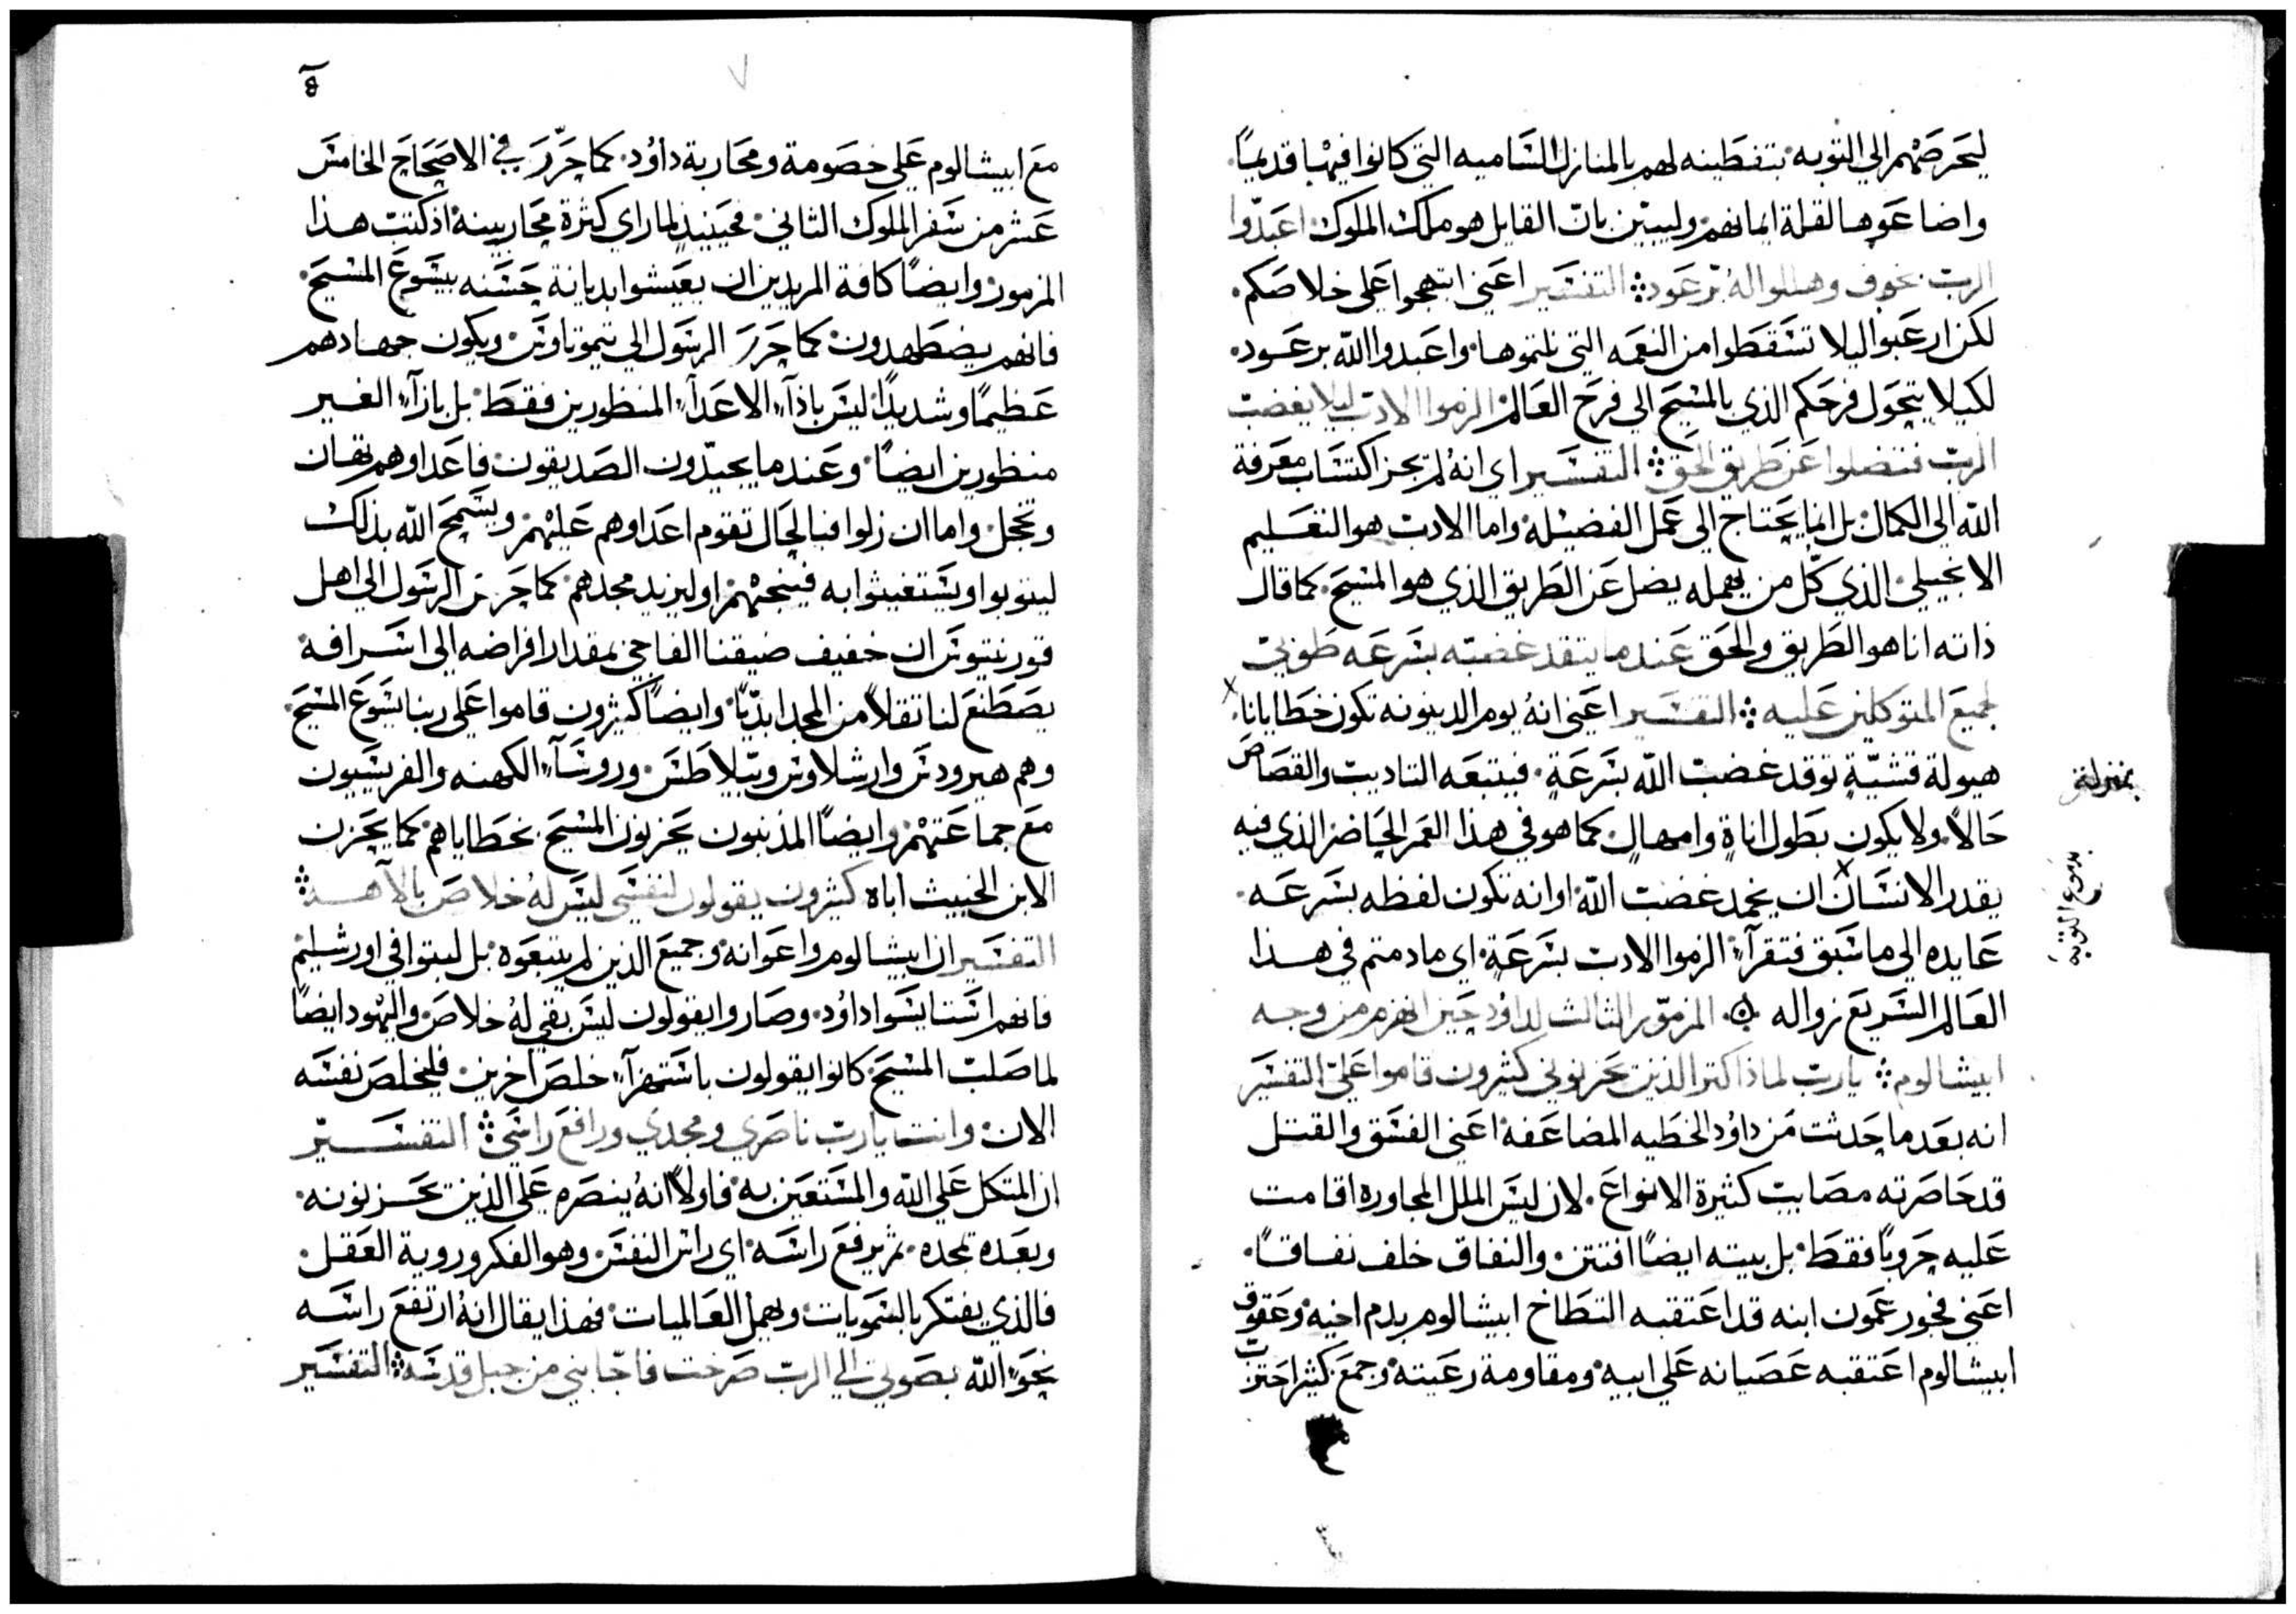 ليحرضهم الي التوبه بتفطينه لهم بالمنازل الساميه التي كانوا فيها قديماً.
واضاعوها لقلة ايمانهم. وليبيّن بان القايل هو ملك الملوك. اعبدوا
الرب بخوف وهللوا له برعود ⁘ التفسير اعني ابتهجوا علي خلاصكم.
لكن ارعبوا ليلا تسقطوا من النعمه التي نلتموها. واعبدوا الله برعود.
لكيلا يتحول فرحكم الذي بالمسيح الي فرح العالم. الزموا الادب ليلا يغضب
الرب فتضلوا عن طريق الحق ⁘ التفسير اي انهُ لم يجز اكتساب معرفة
الله الي الكمال. بل انما يحتاج الي عمل الفضيلة. واما الادب هو التعليم
الانجيلي. الذي كل من يهمله يضل عن الطريق الذي هو المسيح. كما قال
ذاته انا هو الطريق والحق عندما يتقد غضبه بسرعه طوبي
لجميع المتوكلين عليه ⁘ التفسير اعني انهُ يوم الدينونه تكون خطايانا.
بمنزلة
هيولة قشيّةٍ توقد غضب الله بسرعةٍ. فيتبعه التاديب والقصاص
حالاً. ولا يكون بطول اناةٍ وامهالٍ. كما هو في هذا العمر الحاضر الذي فيه
يقدر الانسان ان يخمد غضب الله. او انه تكون لفظه بسرعه.
بدموع التوبة
عايده الي ما سبق فتقرآ الزموا الادب بسرعةٍ. اي ما دمتم في هذا
العالم السريع زواله ۞ المزمور الثالث لداوُد حين انهزم من وجه
ابيشالوم ⁘ يارب لماذا كتر الذين يحزنوني كثيرون قاموا عليّ التفسير
انه بعد ما حدثت من داوُد الخطيه المضاعفه. اعني الفسق والقتل
قد حاصرته مصايب كثيرة الانواع. لان ليس الملل المجاوره اقامت
عليه حروباً فقط. بل بيته ايضاً افتتن. والنفاق خلف نفاقاً.
اعني فجور عمون ابنه قد اعتقبه التطاخ ابيشالوم بدم اخيه. وعقوق
ابيشالوم اعتقبه عصيانه علي ابيه. ومقاومة رعيته. وجمع كثير احتزب
مع ابيشالوم علي خصومة ومحاربة داوُد. كما حُرّر في الاصحاح الخامس
عشر من سفر الملوك الثاني. فحينيذٍ لما راي كثرة محاربينهُ اذ كتب هذا
المزمور. وايضاً كافة المريدين ان يعيشوا بديانة حسنه بيسوع المسيح.
فانهم يضطهدون. كما حرر الرسول الي تيموتاوس. ويكون جهادهم
عظيماً وشديداً. ليس باذآء الاعدآء المنظورين فقط. بل بازآء الغير
منظورين ايضاً. وعندما يحيّدون الصديقون. فاعداوهم تهان
وتخجل. واما ان زلوا فبالحال تقوم اعداوهم عليهم. ويسمح الله بذلك
ليتوبوا ويستغيثوا به فينجيهم. او ليزيد مجدهم. كما حرر الرسول الي اهل
قورنتيوس ان خفيف ضيقنا الفاجي بمقدار افراضه الي اسرافه
يصطنع لنا ثقلاً من المجد ابديّاً. وايضاً كثيرون قاموا علي ربنا يسوع المسيح.
وهم هيرودس وارشلاوس وبيلاطس. وروسآء الكهنه والفريسيون
مع جماعتهم. وايضاً المذنبون يحزنون المسيح. بخطاياهم. كما يحزن
الابن الخبيث اباه كثيرون يقولون لنفسي ليس لهُ خلاص بالآهه ⁘
التفسير ان ابيشالوم واعوانه وجميع الذين لم يتبعوه. بل لبتوا في اورشليم
فانهم استايسوا داوُد. وصاروا يقولون ليس بقي لهُ خلاص. واليهود ايضاً
لما صلب المسيح. كانوا يقولون باستهزآء خلص آخرين. فليخلص نفسه
الان. وانت يارب ناصري ومجدي ورافع راسي ⁘ التفسير
ان المتكل علي الله والمستعين به. فاولاً انهُ ينصره علي الذين يحزنونه.
وبعده تمجده. ثم يرفع راسه. اي راس النفس. وهو الفكر وروية العقل.
فالذي يفتكر بالسمويات. ويهمل العالميات. فهذا يقال انهُ ارتفع راسه
نحو الله بصوتي الي الرب صرخت فاجابني من جبل قدسه ⁘ التفسير